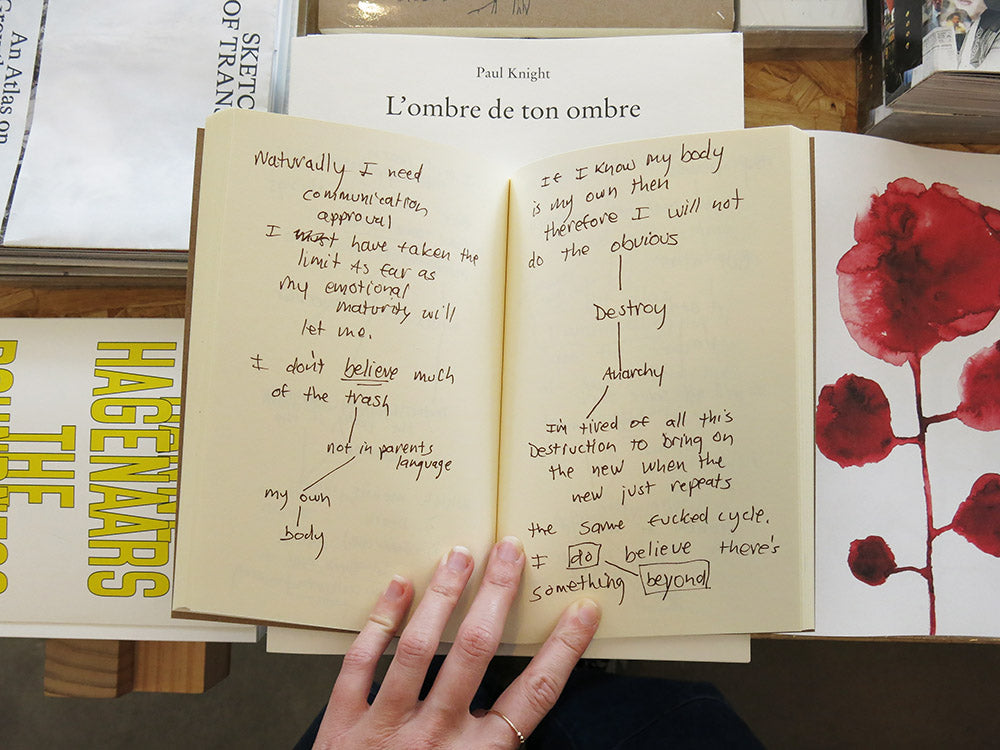 An Atlas on
SKETC
OF TRAN
Paul Knight
L'ombre de ton ombre
Naturally I need
communication
approval
I must have taken the
limit as far as
my emotional
maturity will
let me.
I don't believe much
of the trash
not in parents
language
my own
body
If I know my body
is my own then
therefore I will not
do the obvious
Destroy
Anarchy
I'm tired of all this
Destruction to bring on
the new when the
new just repeats
the same fucked cycle.
I do believe there's
something beyond
HAGENAARS
THE